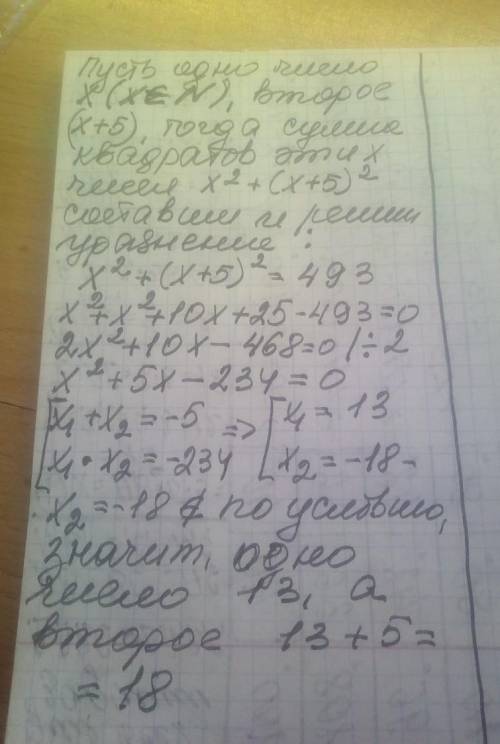 Пусть одно число
x (x∈N), второе
(x+5), тогда сумма
квадратов этих
чисел x² + (x+5)²
составим и решим
уравнение:
x² + (x+5)² = 493
x²+x²+10x+25-493=0
2x²+10x-468=0 | ÷2
x²+5x-234=0
[x₁+x₂=-5 => [x₁=13
[x₁·x₂=-234 [x₂=-18-
x₂=-18 ∉ по условию,
значит, одно
число 13, а
второе 13+5=
=18